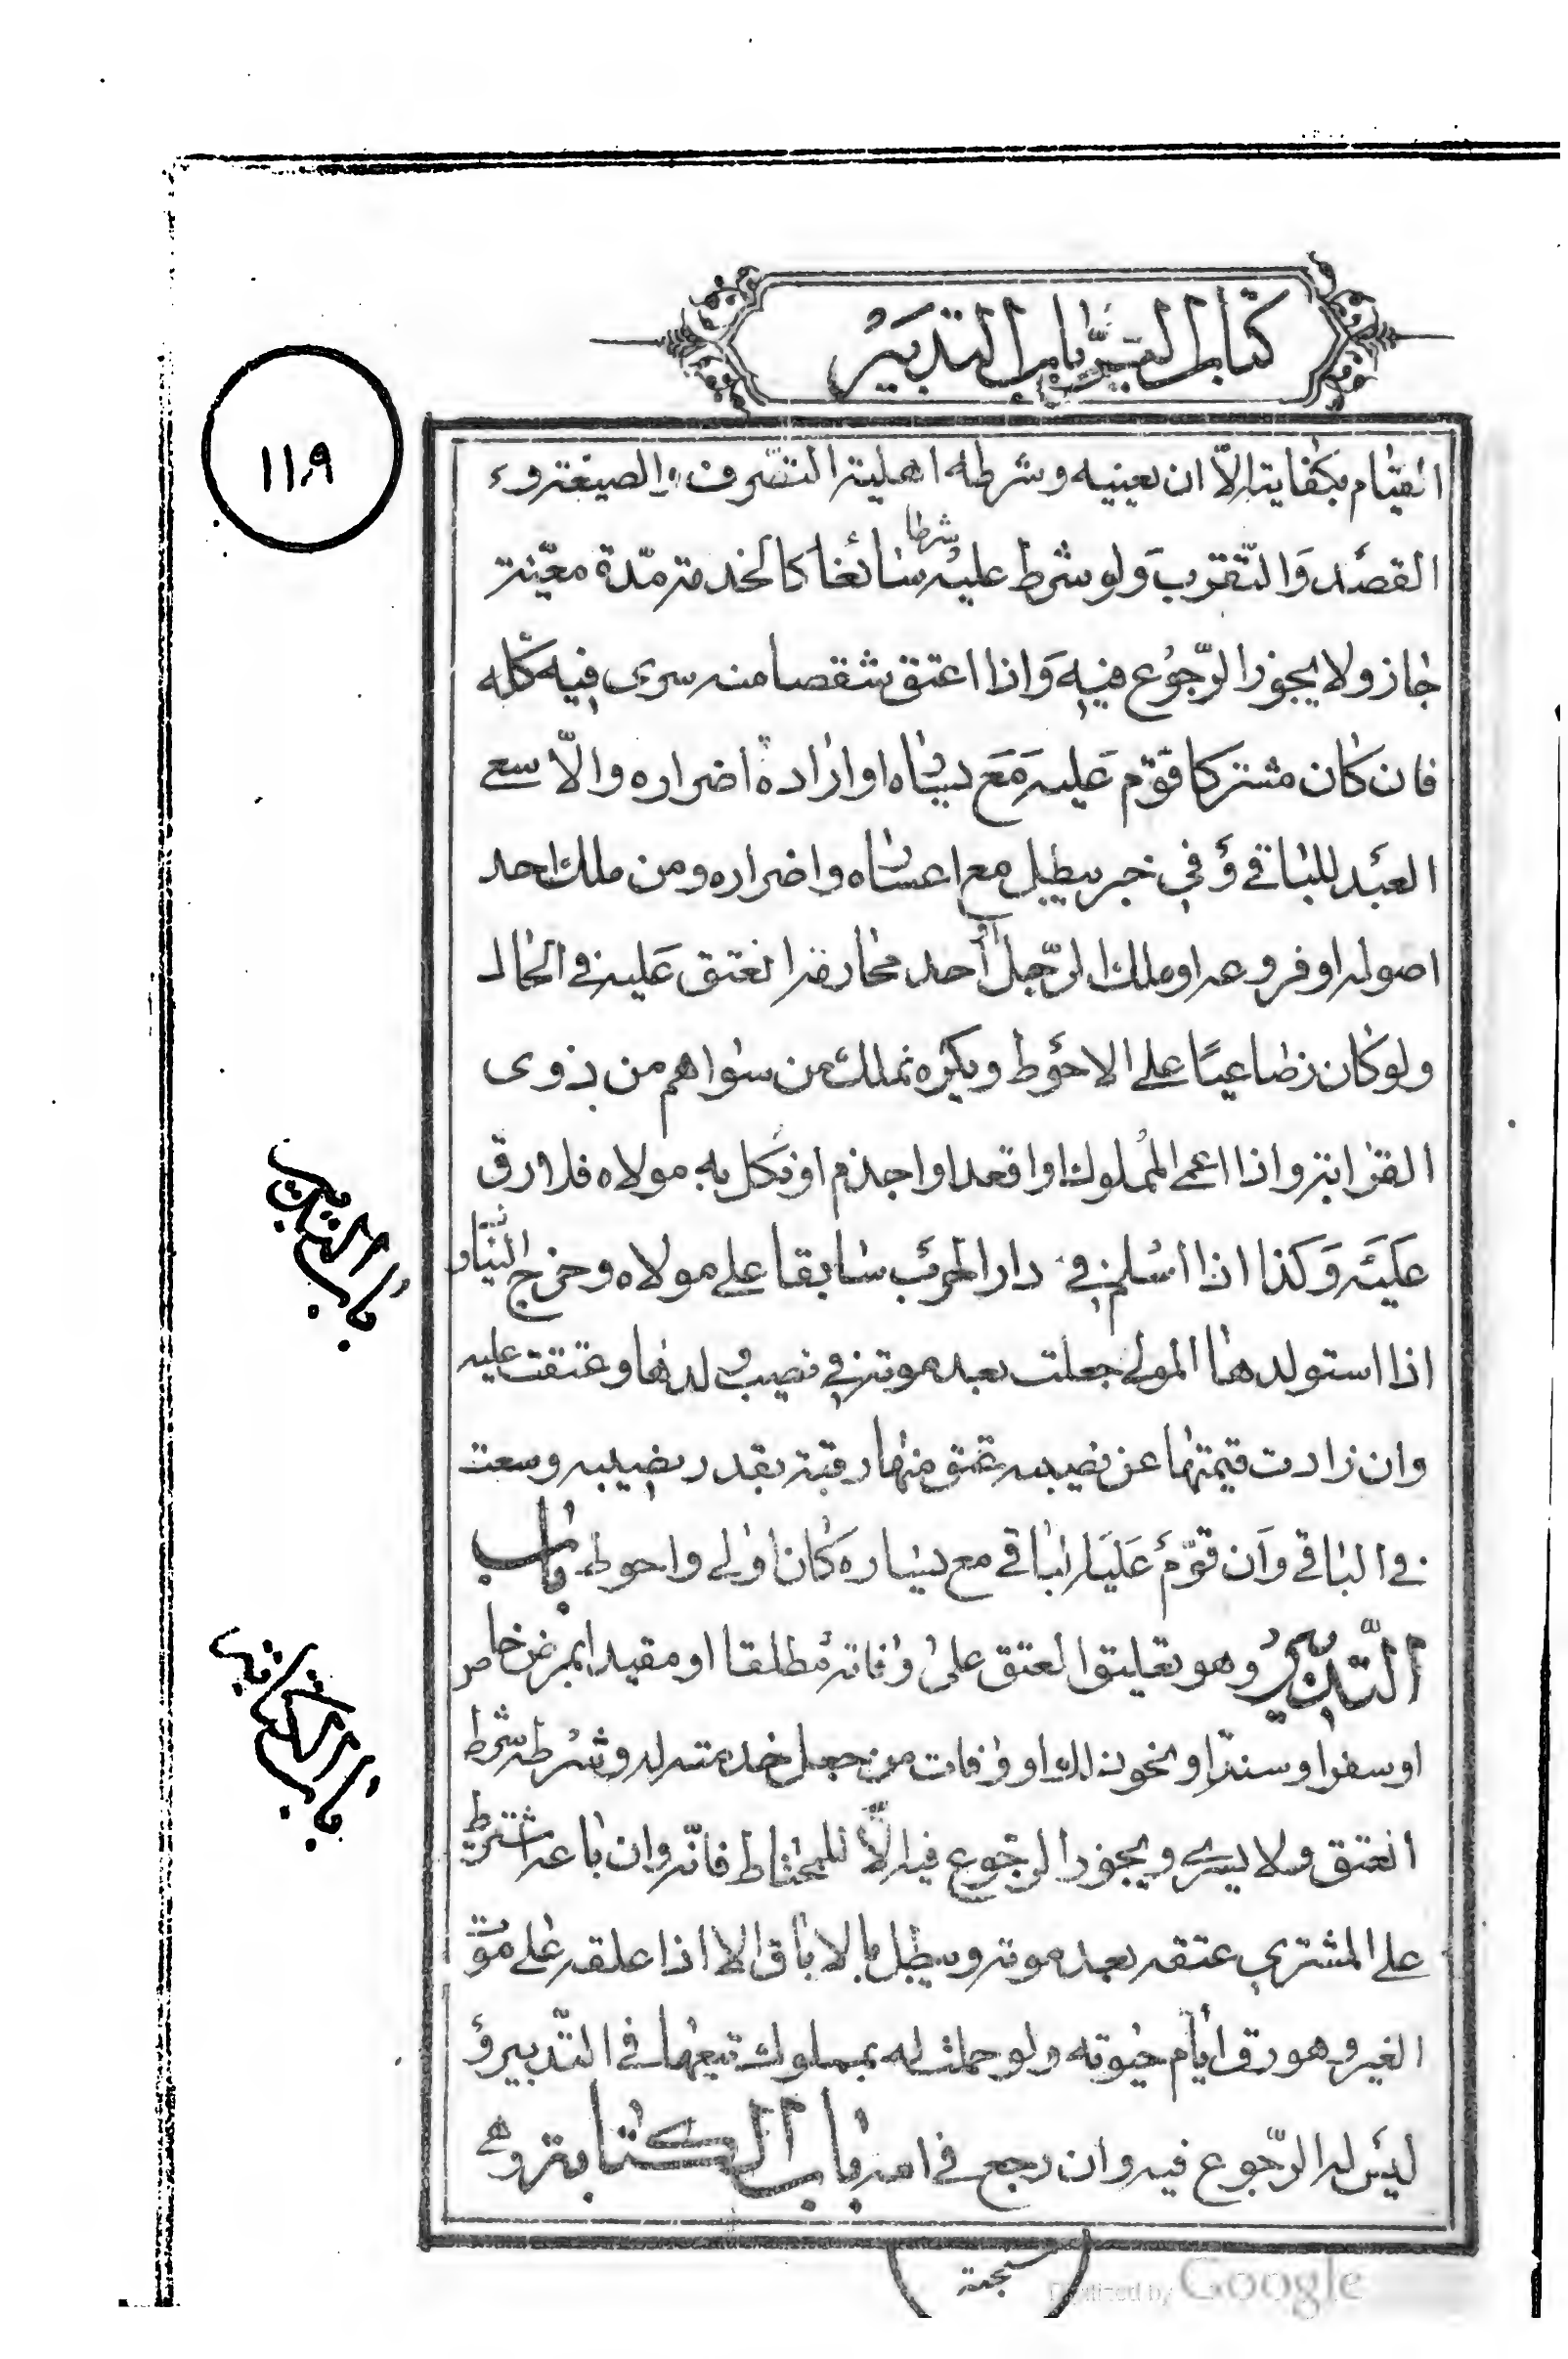 كتاب العتق باب التدبير
١١٩
القيام بكفايته الّا ان يعينه وشرطه اهلية التصرف والصيغة و
القصد وَالتّقرب وَلو شرط عليه شرطا سائغا كالخدمة مدّة معيّنة
جاز ولا يجوز الرّجوع فيه وَاذا اعتق شقصا منه سرى فيه كله
فان كان مشتركا قوّم عَليه مَع يساره او ارادة اضراره والّا سعى
العبد للباقي وَفي خبر يبطل مع اعساره واضراره ومن ملك احد
اصوله او فروعه او ملك الرّجل احد محارمه انعتق عَليه في الحال
ولو كان رضاعيًا على الاحوط ويكره تملك من سواهم من ذوى
القرابة واذا اعمى المملوك او اقعد او اجذم او نكل به مولاه فلا رق
عَليه وَكذا اذا اسلم في دار الحرب سابقا على مولاه وخرج الينا و
اذا استولدها المولى جعلت بعد موته في نصيب ولدها وعتقت عليه
وان زادت قيمتها عن نصيبه عتق منها رقبة بقدر نصيبه وسعت
في الباقي وَان قوّم عَليه الباقي مع يساره كان اولى واحوط باب
التّدبير وهو تعليق العتق على وفاته مطلقا او مقيدا بمرض خاص
او سفر او سنة او نحو ذلك او وفات من جعل خدمته له وشرطه شرط
العتق ولا يسرى ويجوز الرجوع فيه الّا للمحتاط فانّه وان باعه اشترط
على المشتري عتقه بعد موته ويبطل بالاباق الا اذا علقه على موت
الغير وهو رق ايّام حيوته ولو حملت له بمملوك تبعها في التّدبير و
ليس له الرّجوع فيه وان رجع في امه باب الكتابة وهى
باب التدبير
باب الكتابة
Digitized by Google